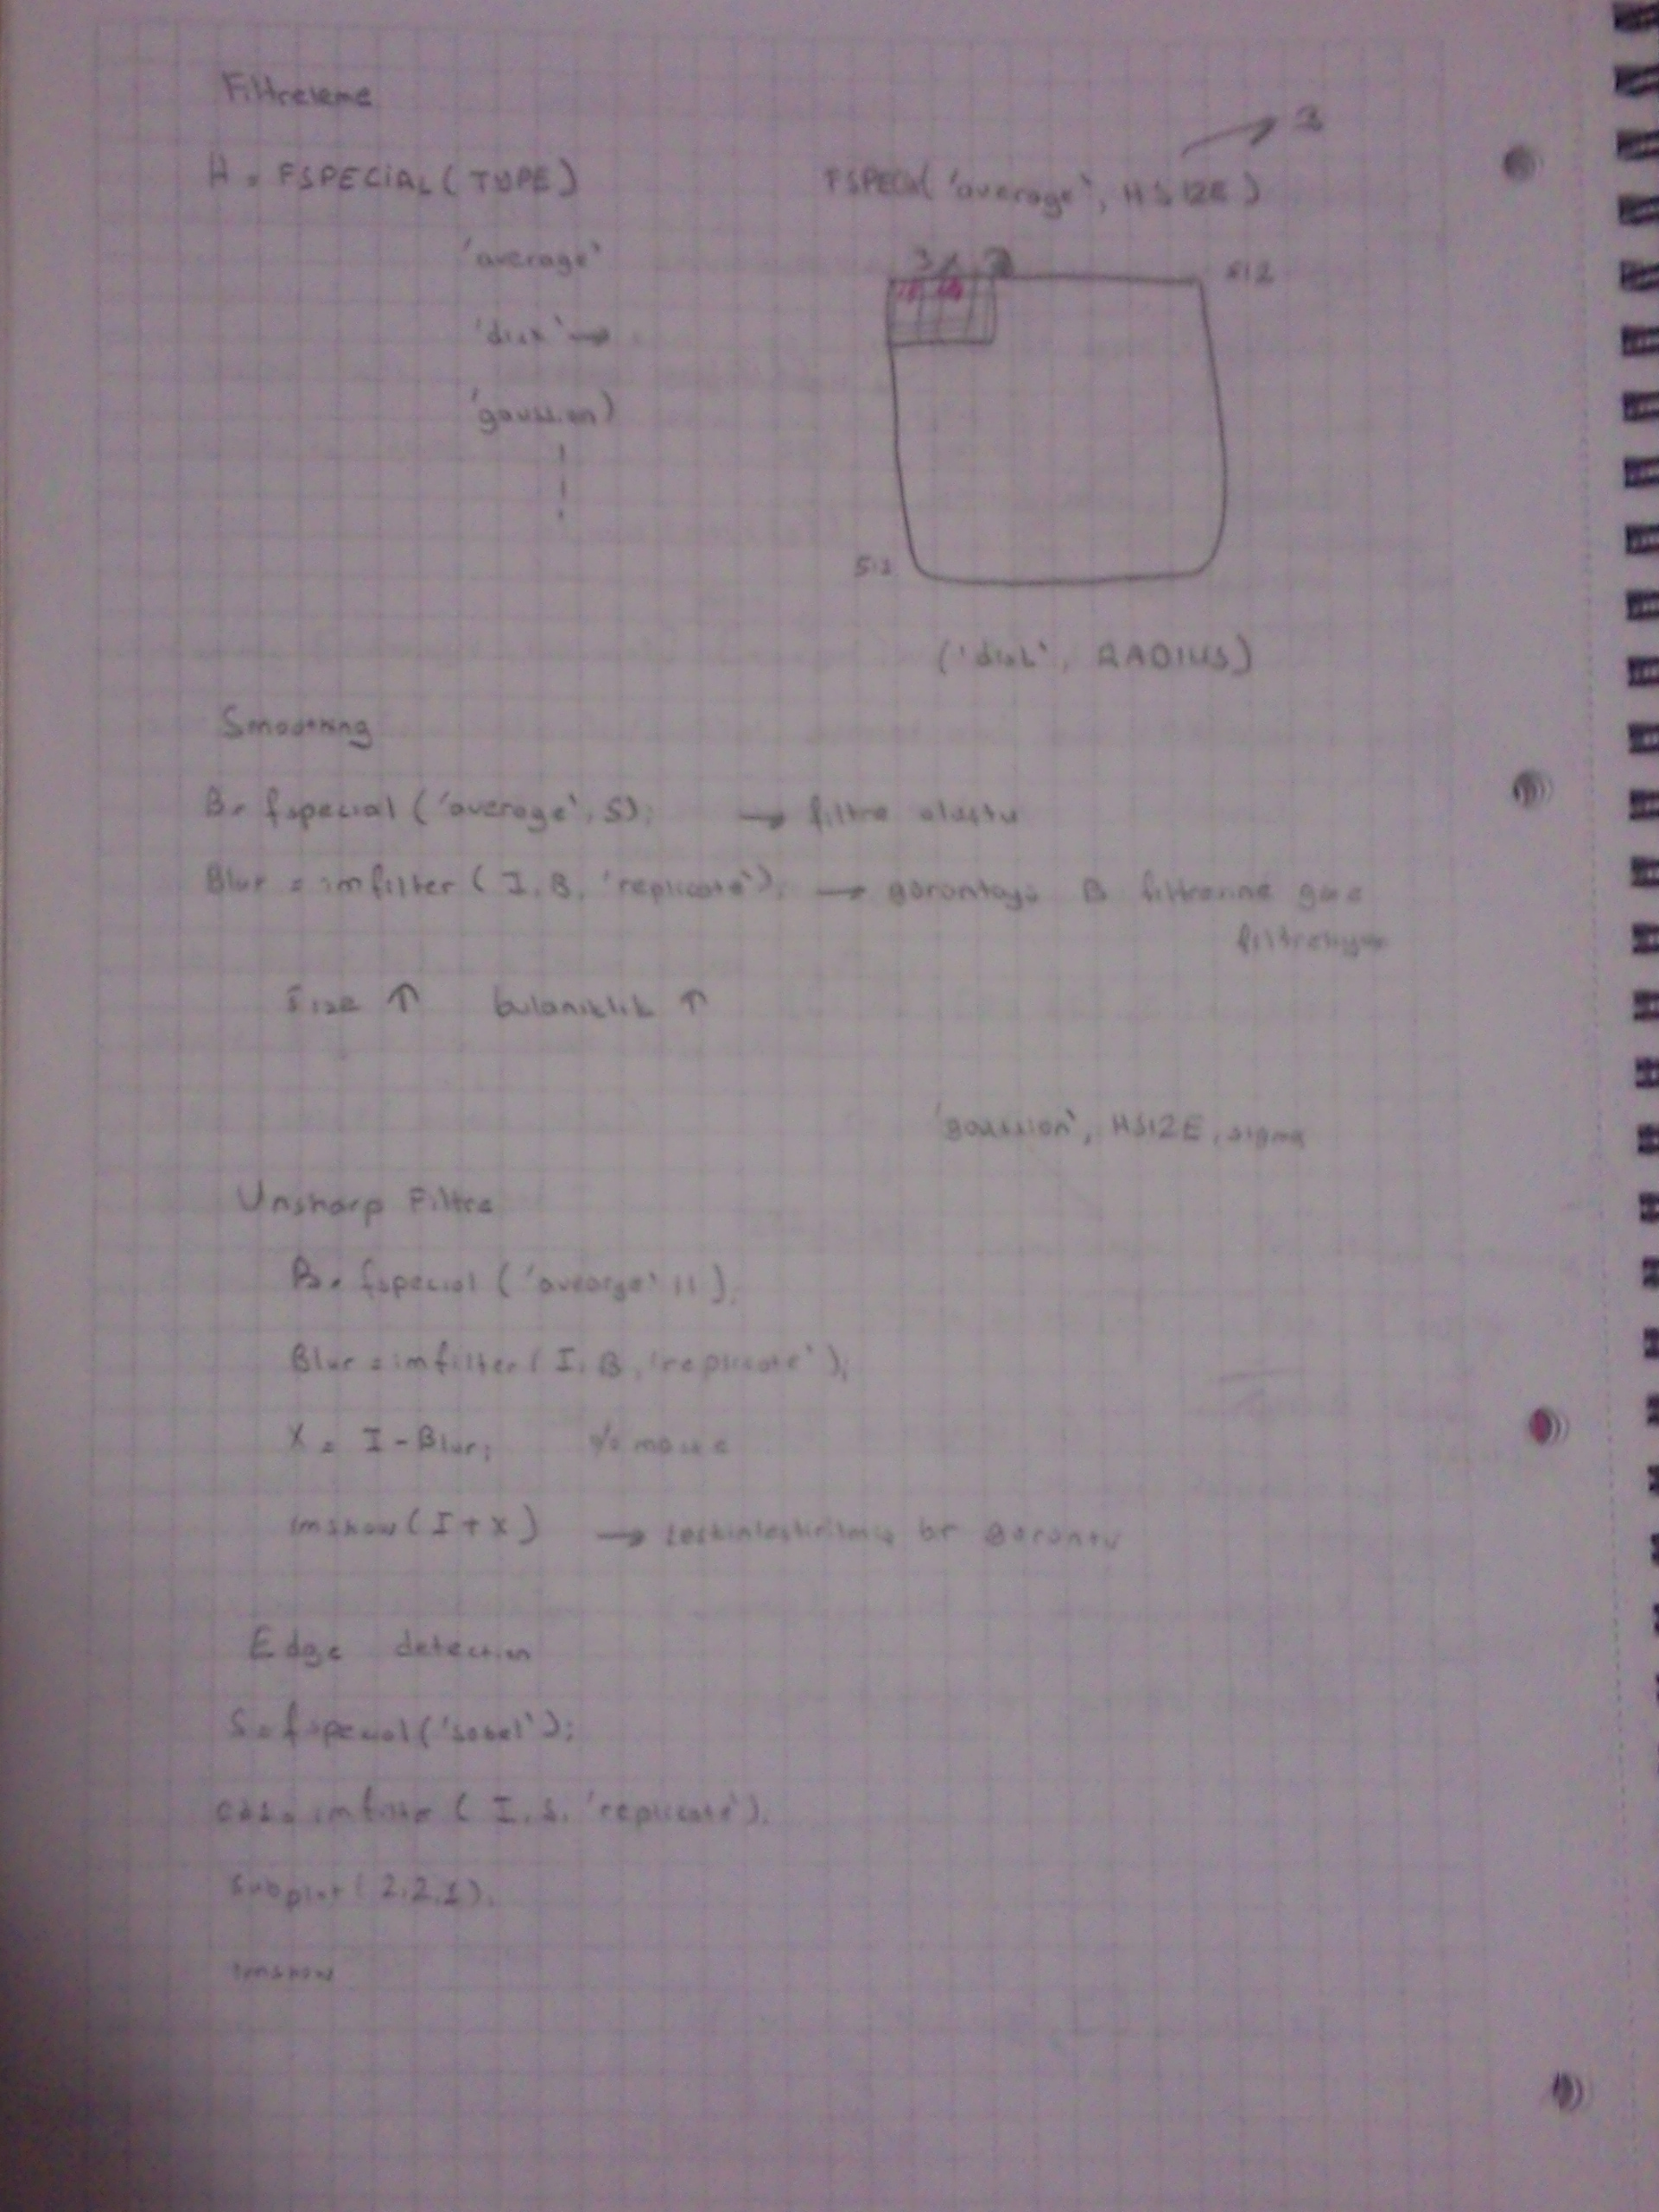 Filtreleme
H = FSPECIAL(TYPE)
'average'
'disk' →
'gaussian)
→ 3
FSPECIAL('average', HSIZE)
3x3
512
512
('disk', RADIUS)
Smoothing
B = fspecial ('average', 5); → filtre oluştu
Blur = imfilter (I, B, 'replicate'); → görüntüyü B filtresine göre
filtreliyor
Size ↑ bulanıklık ↑
'gaussian', HSIZE, sigma
Unsharp Filtre
B = fspecial ('avearge' 11);
Blur = imfilter(I, B, 'replicate');
X = I - Blur; % maske
imshow(I+X) → keskinleştirilmiş bir görüntü
Edge detection
S = fspecial('sobel');
imfilter (I, S, 'replicate');
Subplot(2,2,1);
imshow